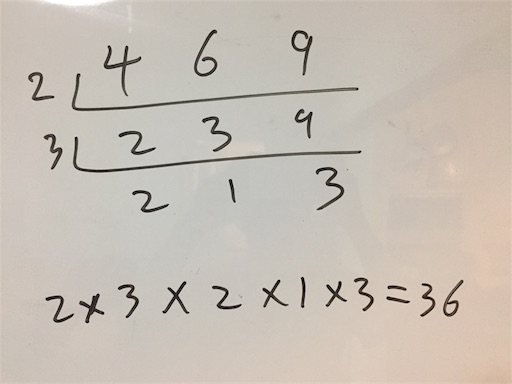 2 4 6 9
3 2 3 9
2 1 3
2 × 3 × 2 × 1 × 3 = 36